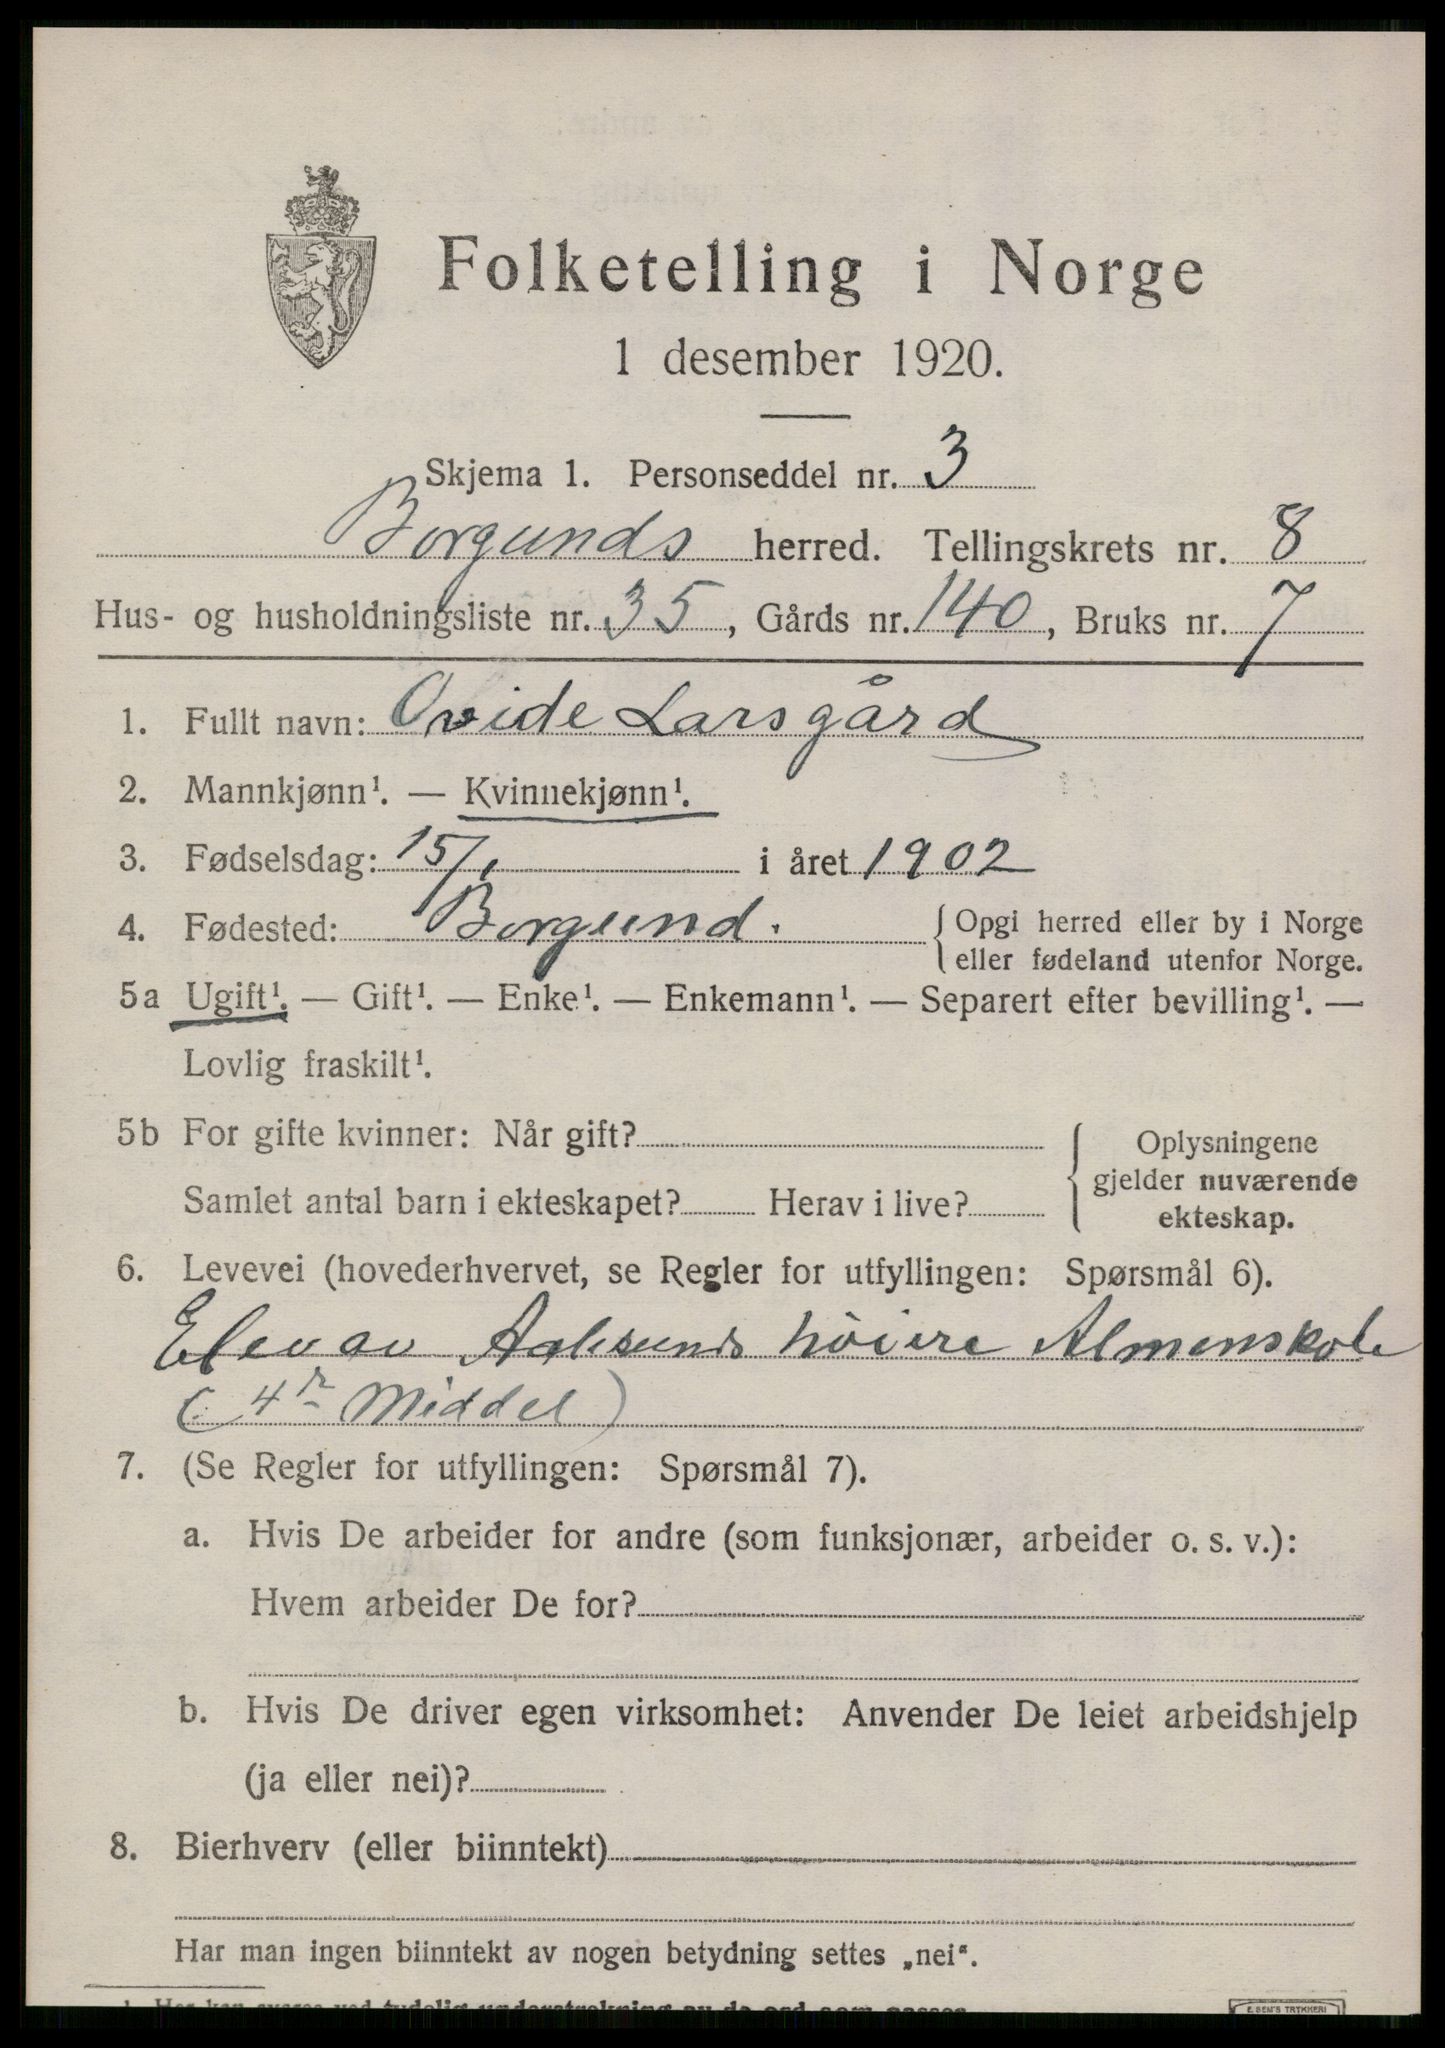 Folketelling i Norge
1 desember 1920.
Skjema 1. Personseddel nr. 3
Borgunds herred. Tellingskrets nr. 8
Hus- og husholdningsliste nr. 35, Gårds nr. 140, Bruks nr. 7
1. Fullt navn: Ovide Larsgård
2. Mannkjønn¹. — Kvinnekjønn¹.
3. Fødselsdag: 15/1 i året 1902
4. Fødested: Borgund. { Opgi herred eller by i Norge
eller fødeland utenfor Norge.
5a Ugift¹. — Gift¹. — Enke¹. — Enkemann¹. — Separert efter bevilling¹. —
Lovlig fraskilt¹.
5b For gifte kvinner: Når gift?
Samlet antal barn i ekteskapet? Herav i live?
{ Oplysningene
gjelder nuværende
ekteskap.
6. Levevei (hovederhvervet, se Regler for utfyllingen: Spørsmål 6).
Elev av Aalesunds höiere Almenskole
(: 4r Middel)
7. (Se Regler for utfyllingen: Spørsmål 7).
a. Hvis De arbeider for andre (som funksjonær, arbeider o. s. v.):
Hvem arbeider De for?
b. Hvis De driver egen virksomhet: Anvender De leiet arbeidshjelp
(ja eller nei)?
8. Bierhverv (eller biinntekt)
Har man ingen biinntekt av nogen betydning settes „nei“.